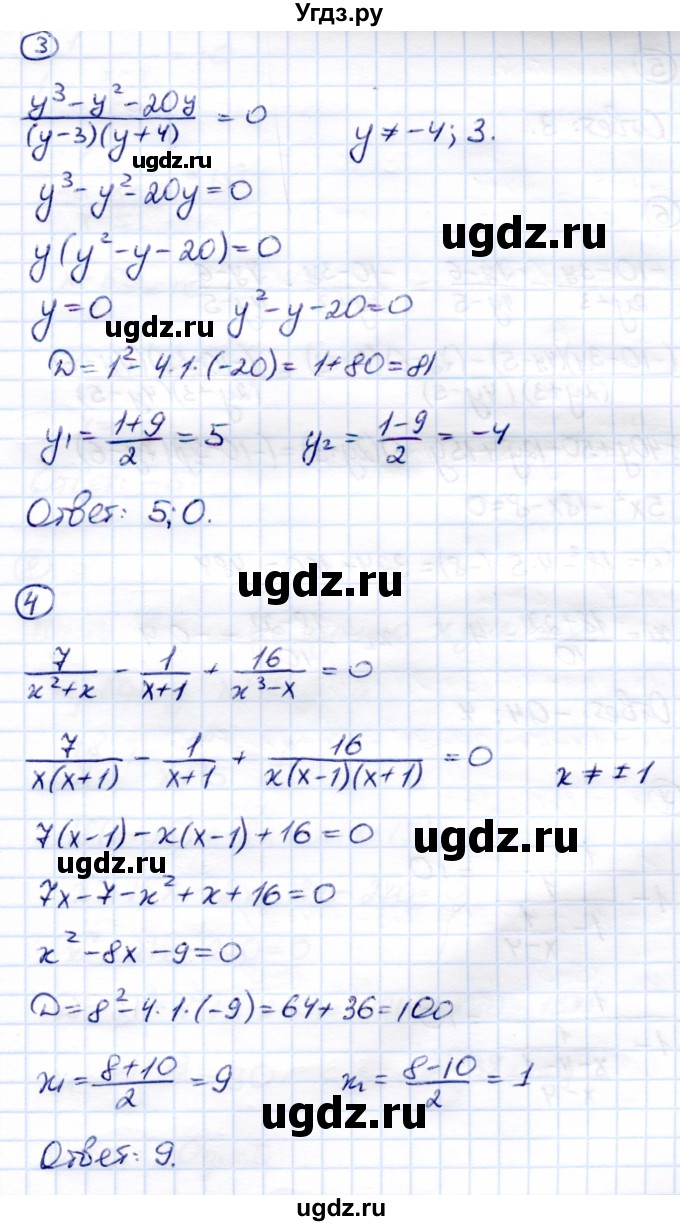 Угдз.ру
3
(y³ - y² - 20y)/((y-3)(y+4)) = 0     y ≠ -4; 3.
ugdz.ru
y³ - y² - 20y = 0
ugdz.ru
y(y² - y - 20) = 0
y = 0     y² - y - 20 = 0
ugdz.ru
D = 1² - 4·1·(-20) = 1+80 = 81
y₁ = (1+9)/2 = 5     y₂ = (1-9)/2 = -4
Ответ: 5; 0.
ugdz.ru
4
7/(x²+x) - 1/(x+1) + 16/(x³-x) = 0
7/(x(x+1)) - 1/(x+1) + 16/(x(x-1)(x+1)) = 0     x ≠ ±1
7(x-1) - x(x-1) + 16 = 0
ugdz.ru
ugdz.ru
7x - 7 - x² + x + 16 = 0
x² - 8x - 9 = 0
D = 8² - 4·1·(-9) = 64 + 36 = 100
x₁ = (8+10)/2 = 9     x₂ = (8-10)/2 = 1
ugdz.ru
Ответ: 9.
ugdz.ru